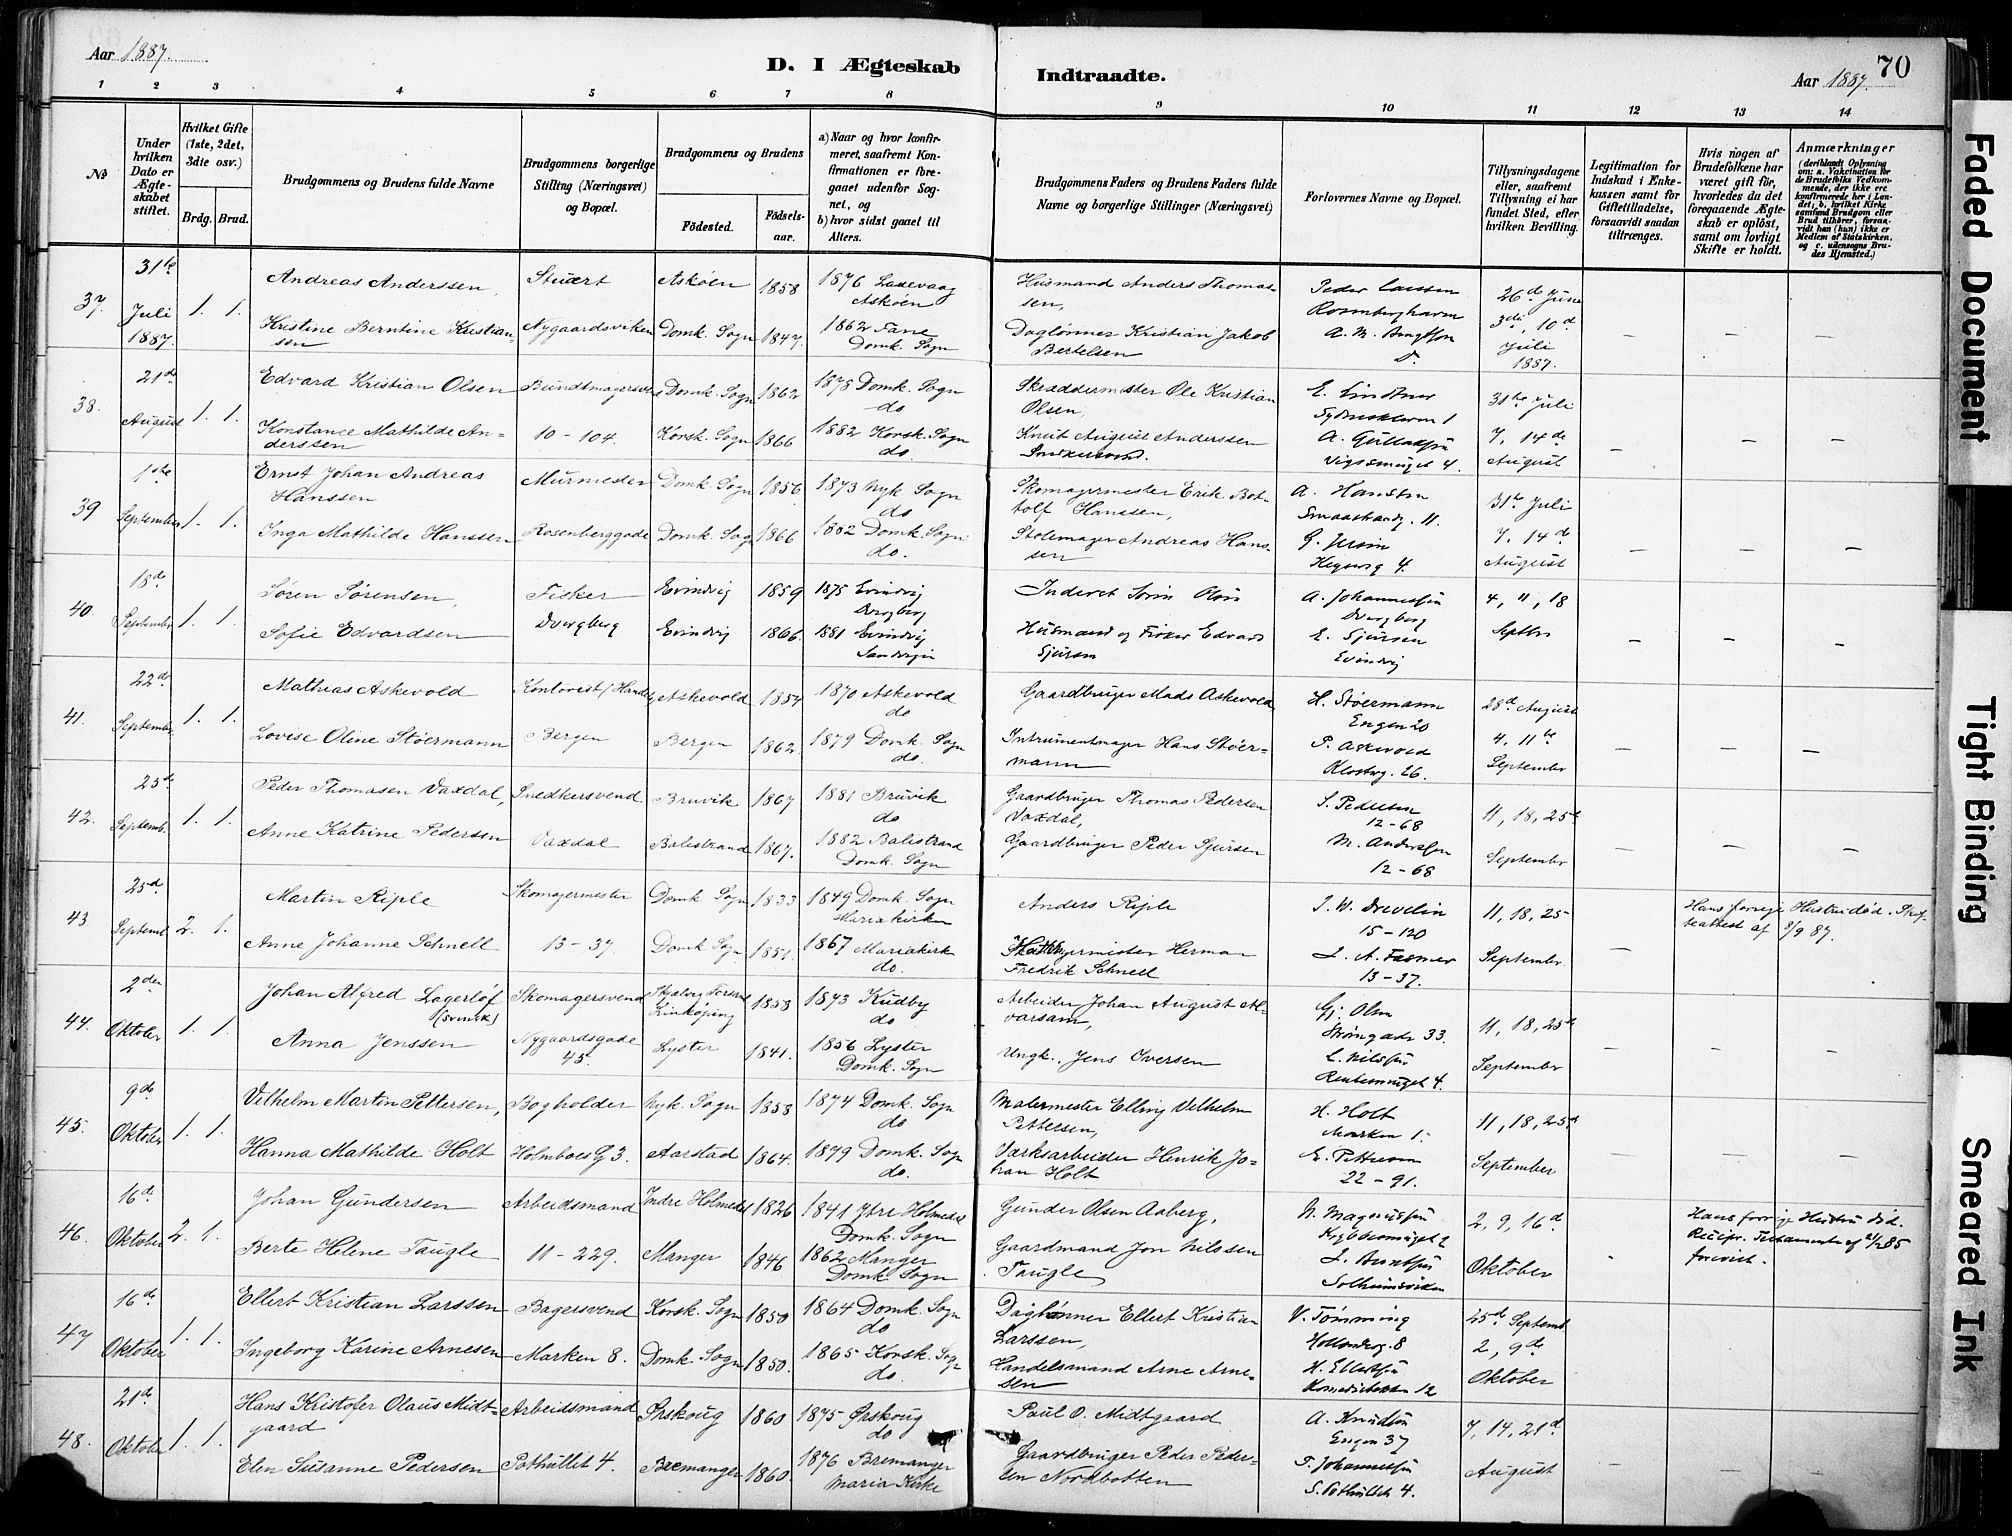 Aar 1887.
D. I Ægteskab
Indtraadte.
Aar 1887.
70
1 2 3 4 5 6 7 8 9 10 11 12 13 14
No
Under hvilken Dato er Ægteskabet stiftet.
Hvilket Gifte (1ste, 2det, 3die osv.)
Brdg. Brud.
Brudgommens og Brudens fulde Navne
Brudgommens borgerlige Stilling (Næringsvei) og Bopæl.
Brudgommens og Brudens
Födested.
Födselsaar.
a) Naar og hvor konfirmeret, saafremt Konfirmationen er foregaaet udenfor Sognet, og
b) hvor sidst gaaet til Alters.
Brudgommens Faders og Brudens Faders fulde Navne og borgerlige Stillinger (Næringsvei)
Forlovernes Navne og Bopæl.
Tillysningsdagene eller, saafremt Tillysning ei har fundet Sted, efter hvilken Bevilling.
Legitimation for Indskud i Enkekassen samt for Giftetilladelse, forsaavidt saadan tiltrænges.
Hvis nogen af Brudefolkene har været gift för, hvorledes da det foregaaende Ægteskab er oplöst, samt om lovligt Skifte er holdt.
Anmærkninger
(deriblandt Oplysning om: a. Vakcination for de Brudefolks Vedkommende, der ikke ere konfirmerede her i Landet, b. hvilket Kirkesamfund Brudgom eller Brud tilhörer, forsaavidt han (hun) ikke er Medlem af Statskirken, og c. udensogns Brudes Hjemsted.)
37. 31te Juli 1887. 1. 1.
Andreas Anderssen, Stuert Askøen 1858 1876 Laxevaag Askøen
Husmand Anders Thomassen,
Kristine Berntine Kristiansen Nygaardsviken Domk. Sogn 1847. 1862 Fane Domk. Sogn
Daglønner Kristian Jakob Bertelsen
26de Juni 3die, 10de Juli 1887. — — —
38. 21de August 1. 1.
Edvard Kristian Olsen Domk. Sogn 1862 1878 Domk. Sogn do
Skræddermester Ole Kristian Olsen,
Konstance Mathilde Anderssen 10-104. Korsk. Sogn 1866 1882 Korsk. Sogn do.
Knut August Anderssen
31te Juli 7, 14de August — — —
39 1ste September 1. 1.
Ernst Johan Andreas Hanssen Murmester Domk. Sogn 1856 1873 Nyk. Sogn do
Skomagermester Erik Bottolf Hanssen,
A. Hanssen
Inga Mathilde Hanssen Rosenberggade Domk. Sogn 1866 1882 Domk. Sogn do.
Stolemager Andreas Hanssen
31te Juli 7, 14de August — — —
40 18de September 1. 1.
Søren Sørensen, Fisker Evindvig 1859 1875 Evindvig Dvergberg
A. Johannessen Dvergberg
Sofie Edvardsen Dvergberg Evindvig 1866. 1881 Evindvig
Husmand og Fisker Edvard Sjursen
E. Sjursen Evindvig
4, 11, 18 Septbr — — —
41. 22de September. 1. 1.
Mathias Askevold Kontorist (Handel) Askevold 1854 1870 Askevold do
Gaardbruger Mads Askevold
H. Støermann Engen 20
Lovise Oline Støermann Bergen Bergen 1862 1879 Domk. Sogn do.
Intrumentmager Hans Støermann
P. Askevold Klosterg. 26.
28de August 4, 11te September — — —
42. 25de Septemb. 1. 1.
Peder Thomasen Vaxdal, Snedkersvend Bruvik 1867 1881 Bruvik do
Gaardbruger Thomas Pedersen Vaxdal,
S. Pedersen 12-68
Anne Katrine Pedersen Vaxdal Balestrand 1867. 1882 Balestrand Domk. Sogn
Gaardbruger Peder Sjursen
M. Anderssen 12-68
11, 18, 25de September — — —
43. 25de Septemb 2. 1.
Martin Riple Skomagermester Domk. Sogn 1833 1849 Domk. Sogn Mariakirken
Anders Riple
J. W. Drevelin 15-120
Anne Johanne Schnell 13-37. Domk. Sogn 1851 1867 Mariakirk do.
Herman Fredrik Schnell
J. A. Fasmer 13-37.
11, 18, 25 September. —
Hans forrige Hustru død. Skifteattest af 8/9 87.
44. 2den Oktober 1. 1.
Johan Alfred Lagerlöf (svensk) Skomagersvend Linköping 1858 1873 Kudby do
Arbeider Johan August Alvarsam,
Gj. Olsen Strømgade 33.
Anna Jenssen Nygaardsgade 45. Lyster 1841. 1856 Lyster Domk. Sogn
Ungk. Jens Iversen
L. Nilssen
11, 18, 25de September — — —
45. 9de Oktober 1. 1.
Vilhelm Martin Pettersen, Bogholder Nyk. Sogn 1853 1874 Domk. Sogn do
Malermester Elling Vilhelm Pettersen,
H. Holt Marken 1.
Hanna Mathilde Holt Holmboes G 3. Aarstad 1864. 1879 Domk. Sogn do.
Værksarbeider Henrik Johan Holt
E. Pettersen 22-91.
11, 18, 25de September — — —
46. 16de Oktober 2. 1.
Johan Gundersen Arbeidsmand Indre Holmedal 1826 1841 Ytre Holmedal Domk. Sogn
Gunder Olsen Aaberg,
N. Magnussen
Berte Helene Taugle 11-229. Manger 1846 1862 Manger Domk. Sogn
Gaardmand Jon Nilssen Taugle
Solheimsviken
2, 9, 16de Oktober
Hans forrige Hustru død. Recipr. Testamente af 2/2 85 forevist.
47 16de Oktober 1. 1.
Ellert Kristian Larssen Bagersvend Korsk. Sogn 1850 1864 Domk. Sogn do
Daglønner Ellert Kristian Larssen,
V. Tømming
Ingeborg Karine Arnesen Marken 8. Domk. Sogn 1850. 1865 Korsk. Sogn do.
Handelsmand Arne Arnesen
H. Ellertsen
25de Septemb 2, 9de Oktober — — —
48. 21de Oktober 1. 1.
Hans Kristofer Olaus Midtgaard Arbeidsmand Ørskoug 1860 1875 Ørskoug do
Paul O. Midtgaard
A. Knudsen Engen 37
Elen Susanne Pedersen Pothullet 4. Bremanger 1860. 1876 Bremanger Maria Kirke
Gaardbruger Peder Pedersen Nordbotten
T. Johannessen S. Pothullet 4.
7, 14, 21de August — — —
Faded Document
Tight Binding
Smeared Ink